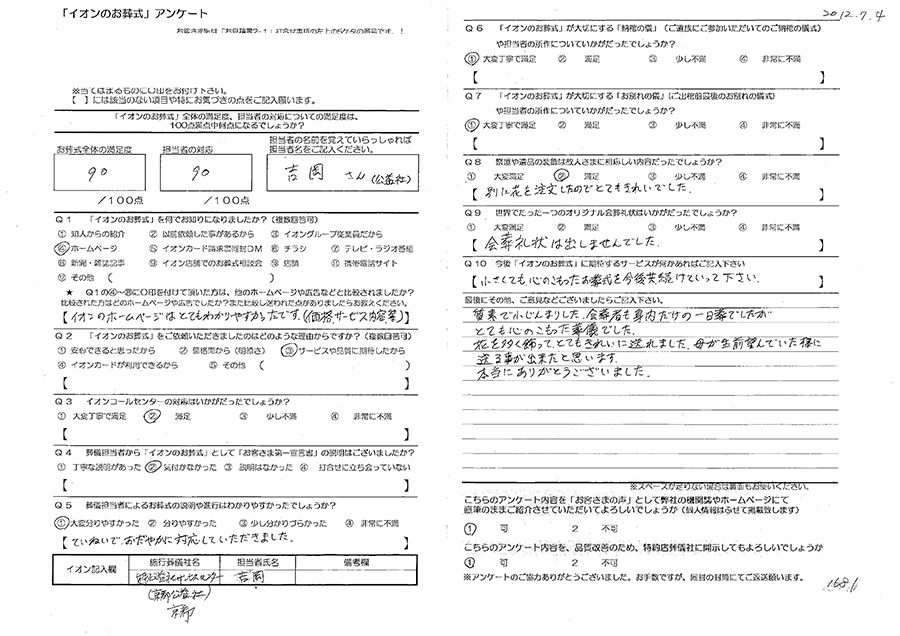 「イオンのお葬式」アンケート
※当てはまるものに○印をお付け下さい。
【 】には該当のない項目や特にお気づきの点をご記入願います。
「イオンのお葬式」全体の満足度、担当者の対応についての満足度は、
100点満点中何点になるでしょうか?
お葬式全体の満足度
担当者の対応
担当者の名前を覚えていらっしゃれば
担当者名をご記入ください。
90
90
吉岡 さん (公益社)
/100点
/100点
Q1 「イオンのお葬式」を何でお知りになりましたか?(複数回答可)
① 知人からの紹介 ② 以前依頼した事があるから ③ イオングループ従業員だから
④ ホームページ ⑤ イオンカード請求書同封DM ⑥ チラシ ⑦ テレビ・ラジオ番組
⑧ 新聞・雑誌記事 ⑨ イオン店舗でのお葬式相談会 ⑩ 店舗 ⑪ 携帯電話サイト
⑫ その他 ( )
★ Q1の④~⑧に○印を付けて頂いた方は、他のホームページや広告などと比較されましたか?
比較された方はどのホームページや広告でしたか?また比較し迷われた点がありましたらお教えください。
【イオンのホームページはとてもわかりやすかったです。(価格、サービス内容等)】
Q2 「イオンのお葬式」をご依頼いただきましたのはどのような理由からですか?(複数回答可)
① 安心できると思ったから ② 価格面から(明瞭さ) ③ サービスや品質に期待したから
④ イオンカードが利用できるから ⑤ その他 ( )
【 】
Q3 イオンコールセンターの対応はいかがだったでしょうか?
① 大変丁寧で満足 ② 満足 ③ 少し不満 ④ 非常に不満
【 】
Q4 葬儀担当者から「イオンのお葬式」として「お客さま第一宣言書」の説明はございましたか?
① 丁寧な説明があった ② 気付かなかった ③ 説明はなかった ④ 打合せに立ち会っていない
【 】
Q5 葬儀担当者によるお葬式の説明や進行はわかりやすかったでしょうか?
① 大変分りやすかった ② 分りやすかった ③ 少し分りづらかった ④ 非常に不満
【ていねいで、おだやかに対応していただきました。】
イオン記入欄
施行葬儀社名
担当者氏名
備考欄
吉岡
(京都公益社)
京都
2012.7.4
Q6 「イオンのお葬式」が大切にする「納棺の儀」(ご遺族にご参加いただいてのご納棺の儀式)
や担当者の所作についていかがだったでしょうか?
① 大変丁寧で満足 ② 満足 ③ 少し不満 ④ 非常に不満
【 】
Q7 「イオンのお葬式」が大切にする「お別れの儀」(ご出棺前最後のお別れの儀式)
や担当者の所作についていかがだったでしょうか?
① 大変丁寧で満足 ② 満足 ③ 少し不満 ④ 非常に不満
【 】
Q8 祭壇や遺品の装飾は故人さまに相応しい内容だったでしょうか?
① 大変満足 ② 満足 ③ 少し不満 ④ 非常に不満
【別に花を注文したのでとてもきれいでした。】
Q9 世界でたった一つのオリジナル会葬礼状はいかがだったでしょうか?
① 大変満足 ② 満足 ③ 少し不満 ④ 非常に不満
【会葬礼状は出しませんでした。】
Q10 今後「イオンのお葬式」に期待するサービスが何かあればご記入下さい
【小さくても、心のこもったお葬式を今後共続けていって下さい。】
最後にその他、ご意見などございましたらご記入下さい。
質素で小じんまりした、会葬者も身内だけの一日葬でしたが
とても心のこもった葬儀でした。
花を多く飾って、とてもきれいに送れました。母が生前望んでいた様に
送る事が出来たと思います。
本当にありがとうございました。
※スペースが足りない場合は裏面もお使いください。
こちらのアンケート内容を「お客さまの声」として弊社の機関誌やホームページにて
直筆のままご紹介させていただいてよろしいでしょうか(個人情報はふせて掲載致します)
① 可 2 不可
こちらのアンケート内容を、品質改善のため、特約店葬儀社に開示してもよろしいでしょうか
① 可 2 不可
※アンケートのご協力ありがとうございました。お手数ですが、同封の封筒にてご返送願います。